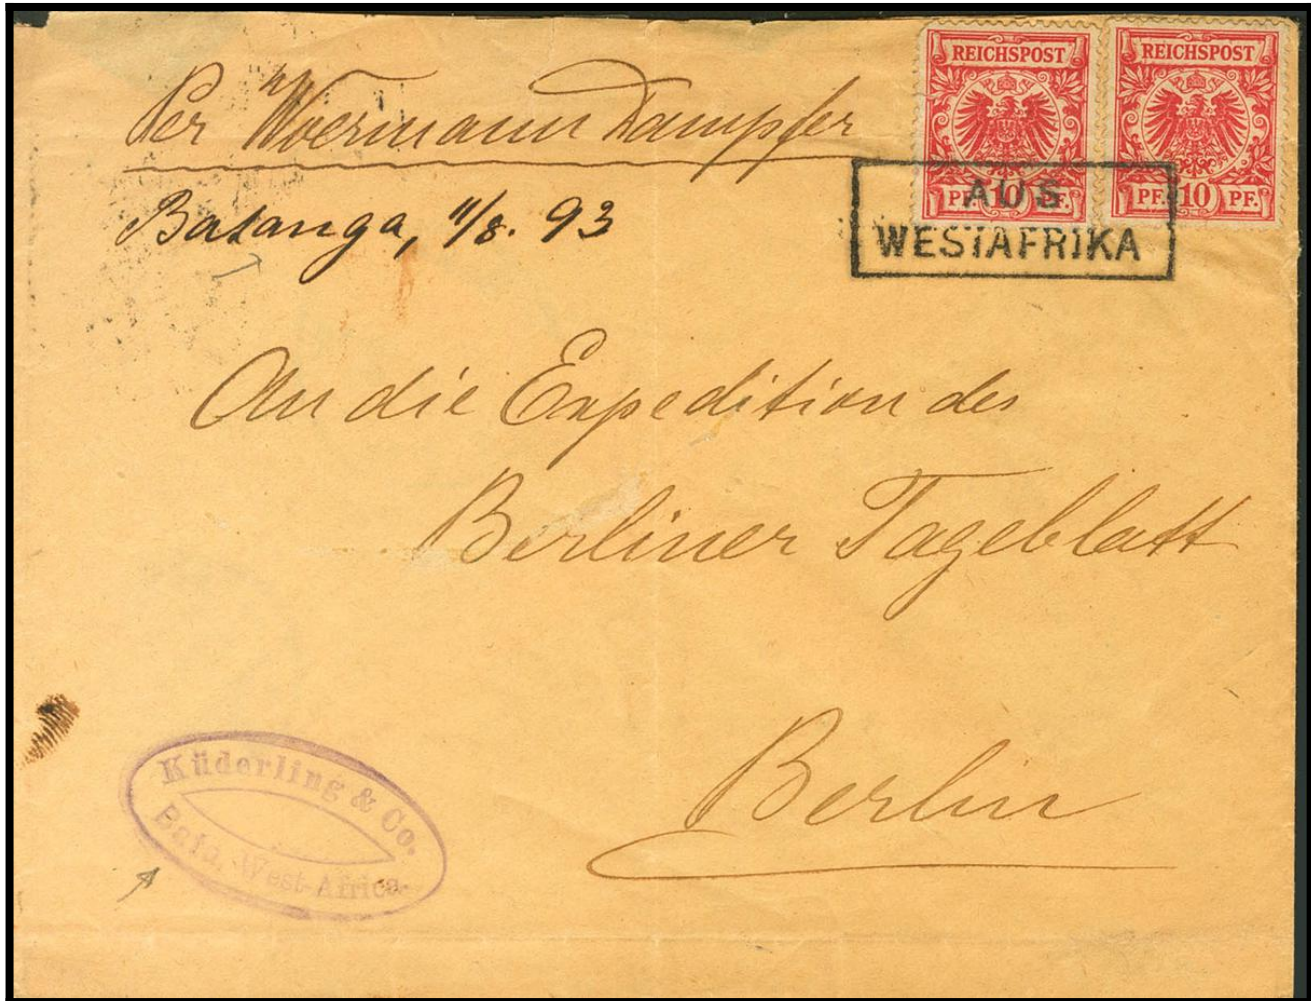 REICHSPOST
PF. 10 PF.
REICHSPOST
PF. 10 PF.
Per Woermann Dampfer
AUS
WESTAFRIKA
Batanga, 11/8. 93
An die Expedition des
Berliner Tageblatt
Berlin
Küderling & Co.
Bata, West-Africa.